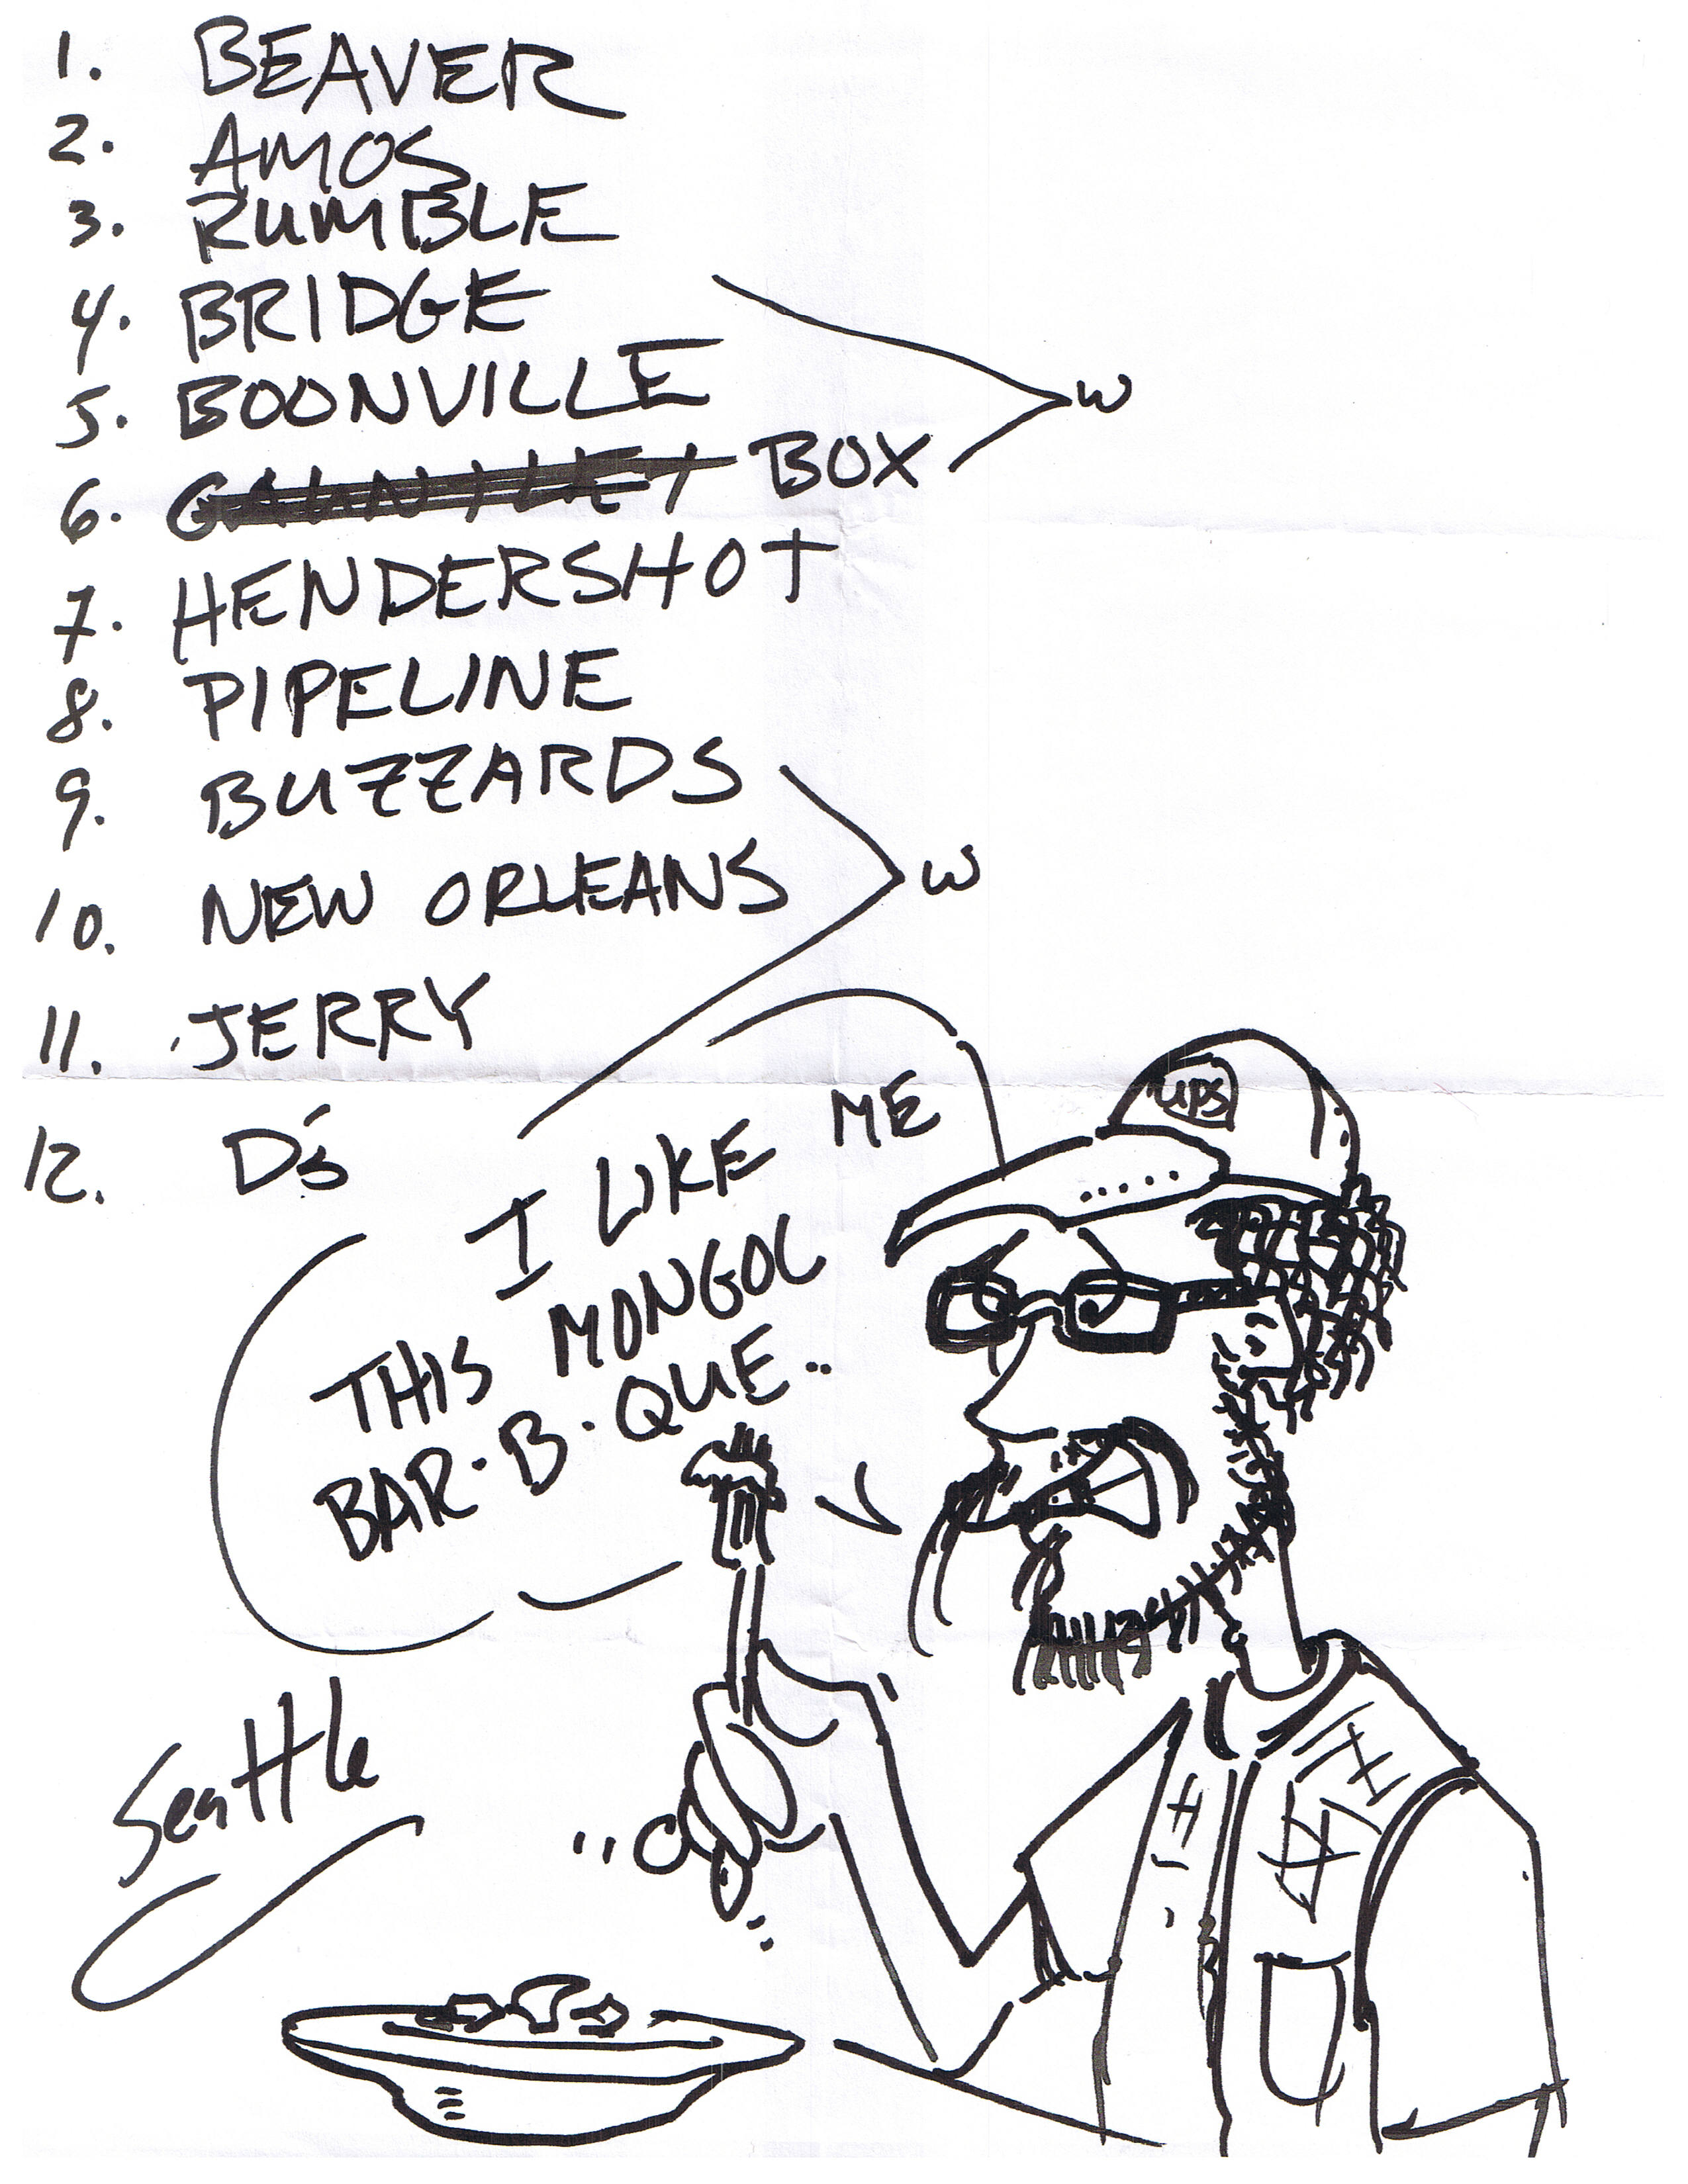 1. BEAVER
2. AMOS
3. RUMBLE
4. BRIDGE
5. BOONVILLE
W
6. GAUNTLET BOX
7. HENDERSHOT
8. PIPELINE
9. BUZZARDS
10. NEW ORLEANS
W
11. JERRY
12. D's
I LIKE ME
THIS MONGOL
BAR·B·QUE..
UPS
Seattle